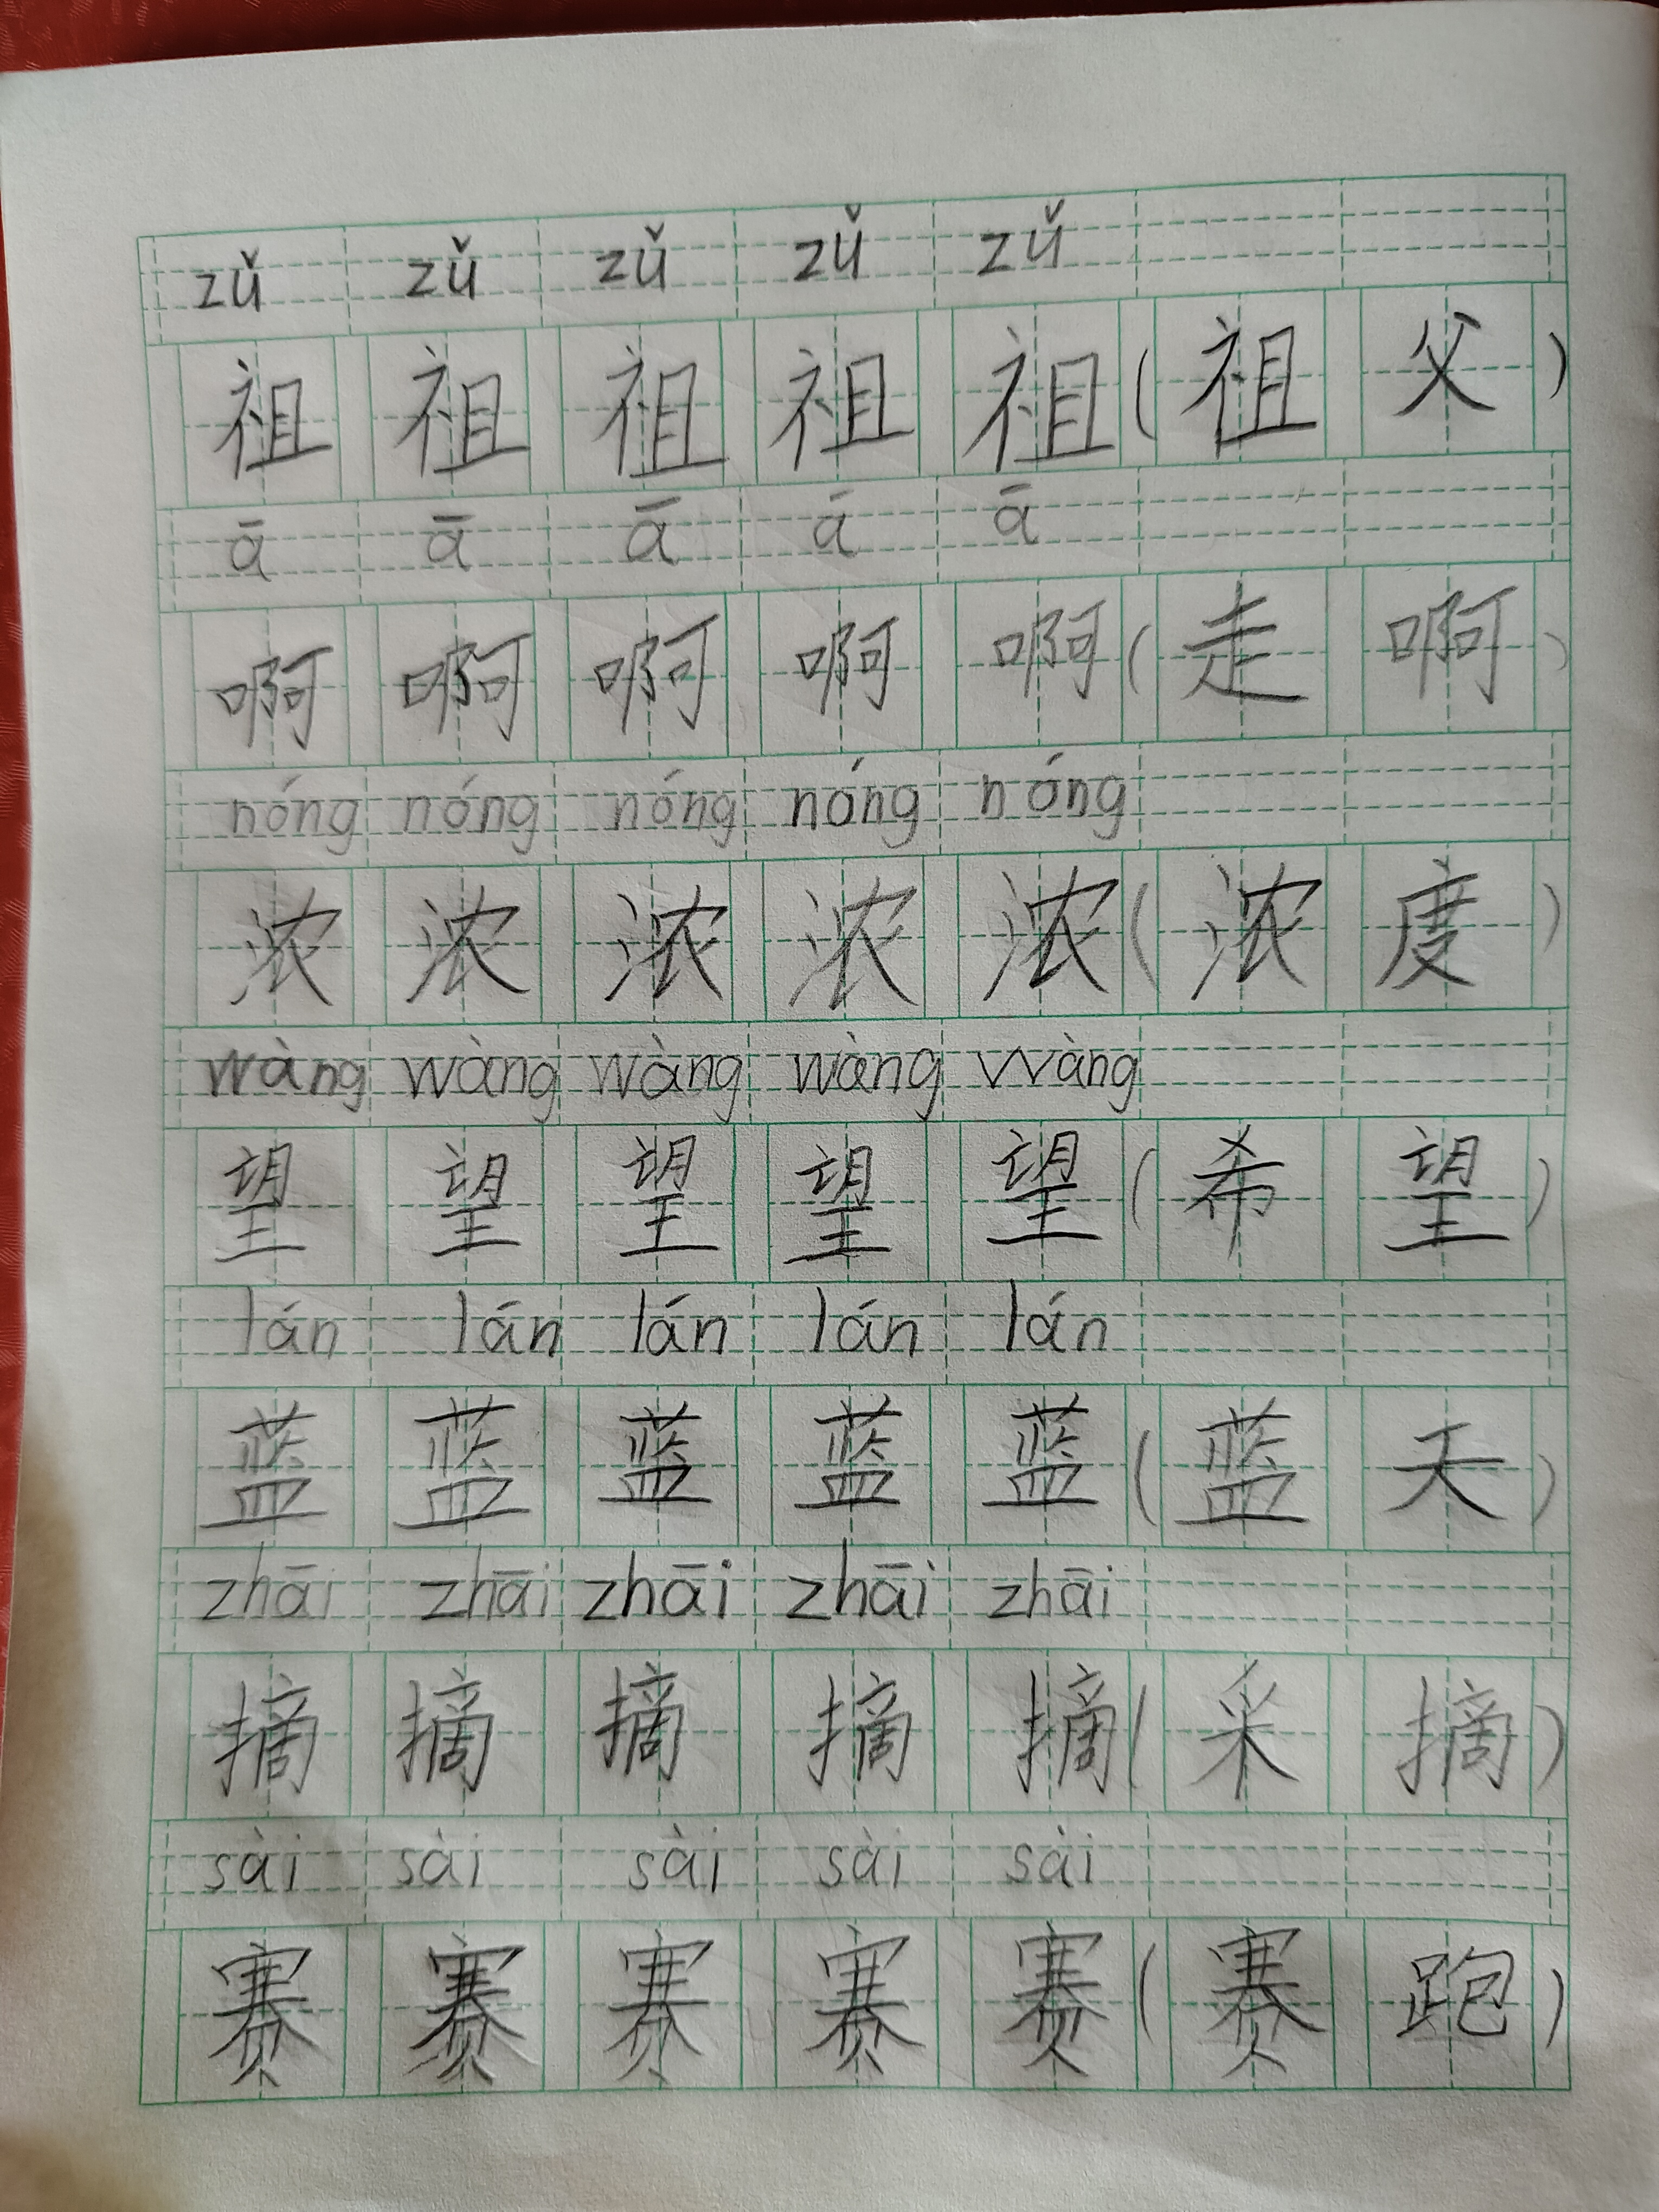 zǔ zǔ zǔ zǔ zǔ
祖 祖 祖 祖 祖 (祖 父)
ā ā ā á ā
啊 啊 啊 啊 啊 (走 啊)
nóng nóng nóng nóng nóng
浓 浓 浓 浓 浓 (浓 度)
wàng wàng wàng wàng wàng
望 望 望 望 望 (希 望)
lán lán lán lán lán
蓝 蓝 蓝 蓝 蓝 (蓝 天)
zhāi zhāi zhāi zhāi zhāi
摘 摘 摘 摘 摘 (采 摘)
sài sài sài sài sài
赛 赛 赛 赛 赛 (赛 跑)